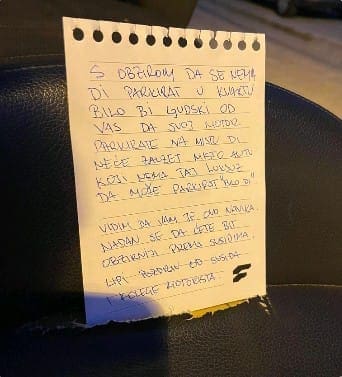 S OBZIROM DA SE NEMA
DI PARKIRAT U KVARTU
BILO BI LJUDSKI OD
VAS DA SVOJ MOTOR
PARKIRATE NA MISTU DI
NEĆE ZAUZET MISTO AUTU
KOJI NEMA TAJ LUKSUZ
DA MOŽE PARKIRAT "BILO DI"
VIDIM DA VAM JE OVO NAVIKA.
NADAN SE DA ĆETE BIT
OBZIRNIJI PREMA SUSIDIMA.
LIPI POZDRAV OD SUSIDA
I KOLEGE MOTORISTA.